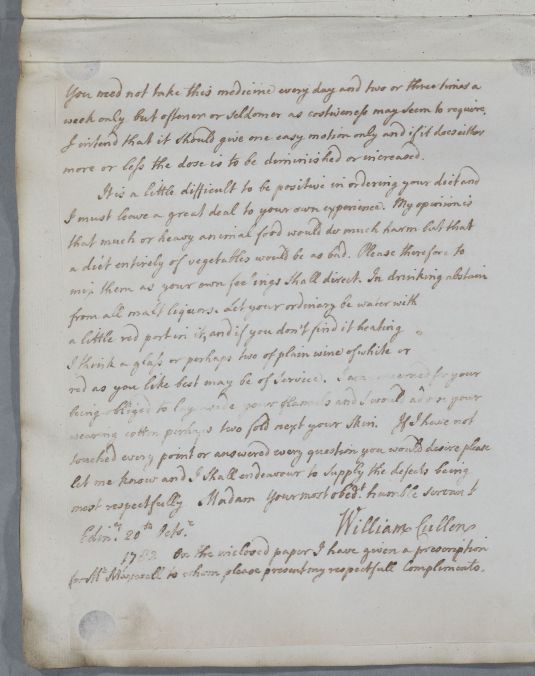 You need not take this medicine every day and two or three times a
week only but oftener or seldomer as costiveness may seem to require.
I intend that it should give one easy motion only and if it does either
more or less the dose is to be diminished or increased.
It is a little difficult to be positive in ordering your diet and
I must leave a great deal to your own experience. My opinion is
that much or heavy animal food would do much harm but that
a diet entirely of vegetables would be as bad. Please therefore to
mix them as your own feelings shall direct. In drinking abstain
from all malt liquors. Let your ordinary be water with
a little red port in it, and if you don't find it heating
I think a glass or perhaps two of plain wine of white or
red as you like best may be of service. I am your
being obliged to lay aside your flannels and I would your
wearing cotton perhaps two fold next your skin. If I have not
touched every point or answered every question you would desire please
let me know and I shall endeavour to supply the defects being
most respectfully Madam Your most obed.t humble servant
Edin.r 20th Octo.r William Cullen
1782 On the inclosed paper I have given a prescription
for Mr. Maxwell to whom please present my respectfull Compliments.